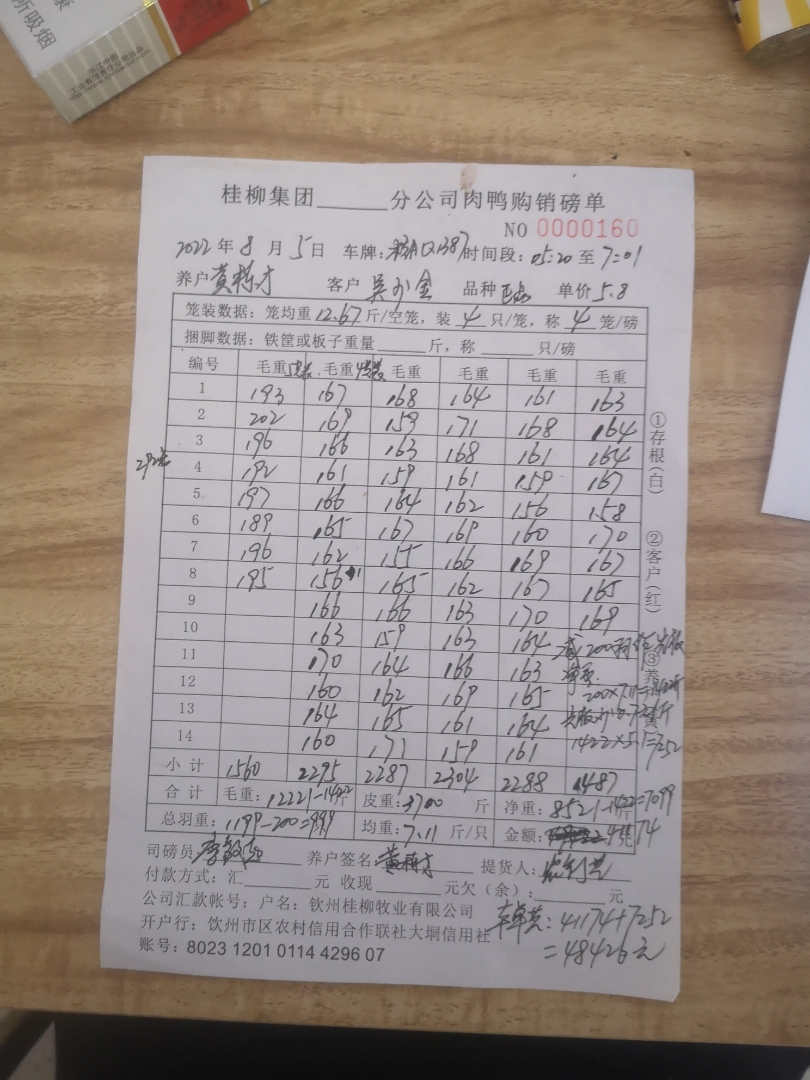 所吸烟
桂柳集团______分公司肉鸭购销磅单
NO 0000160
2022年8月5日 车牌: 时间段:05:20至7:01
养户 黄 客户 吴 金 品种 单价5.8
笼装数据:笼均重12.67斤/空笼,装4只/笼,称4笼/磅
捆脚数据:铁筐或板子重量______斤,称______只/磅
编号 毛重 毛重 毛重 毛重 毛重 毛重
1 193 167 168 164 161 163
2 202 169 159 171 168 164
3 196 166 163 168 161 164
4 192 161 159 161 159 167
5 197 166 164 162 156 158
6 189 165 167 169 160 170
7 196 162 155 166 169 167
8 195 156 165 162 167 165
9 166 166 163 170 169
10 163 159 163 164
11 170 164 166 163
12 160 162 169 165
13 164 165 161 164
14 160 171 159 161
小计 1560 2295 2287 2304 2288 1487
合计 毛重:12221-1422斤 皮重:3700斤 净重:8521-1422斤=7099
总羽重:1199-200=999 均重:7.11斤/只 金额:41174
减200羽
净重:
200×7.11=1422斤
1422×5.1=7252
①存根(白)
②客户(红)
③养
司磅员: 养户签名:黄 提货人:
付款方式:汇______元 收现______元欠(余):______元
公司汇款帐号:户名:钦州桂柳牧业有限公司
开户行:钦州市区农村信用合作联社大垌信用社
账号:8023 1201 0114 4296 07
:41174+7252
=48426元